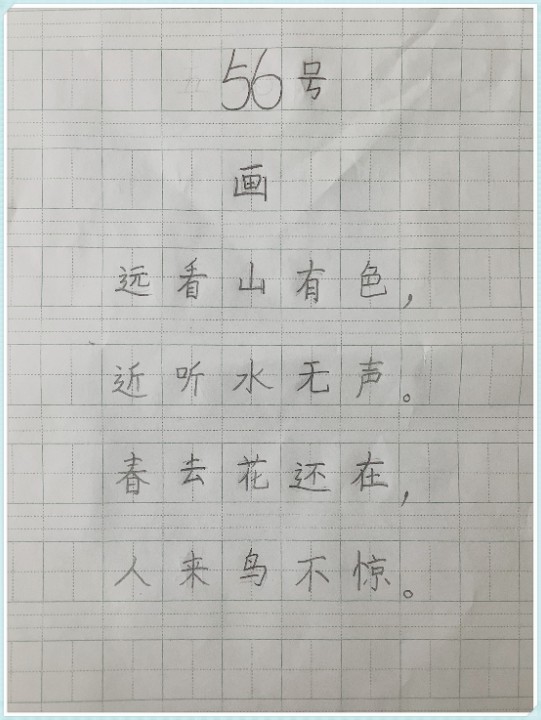 56号
画
远看山有色，
近听水无声。
春去花还在，
人来鸟不惊。